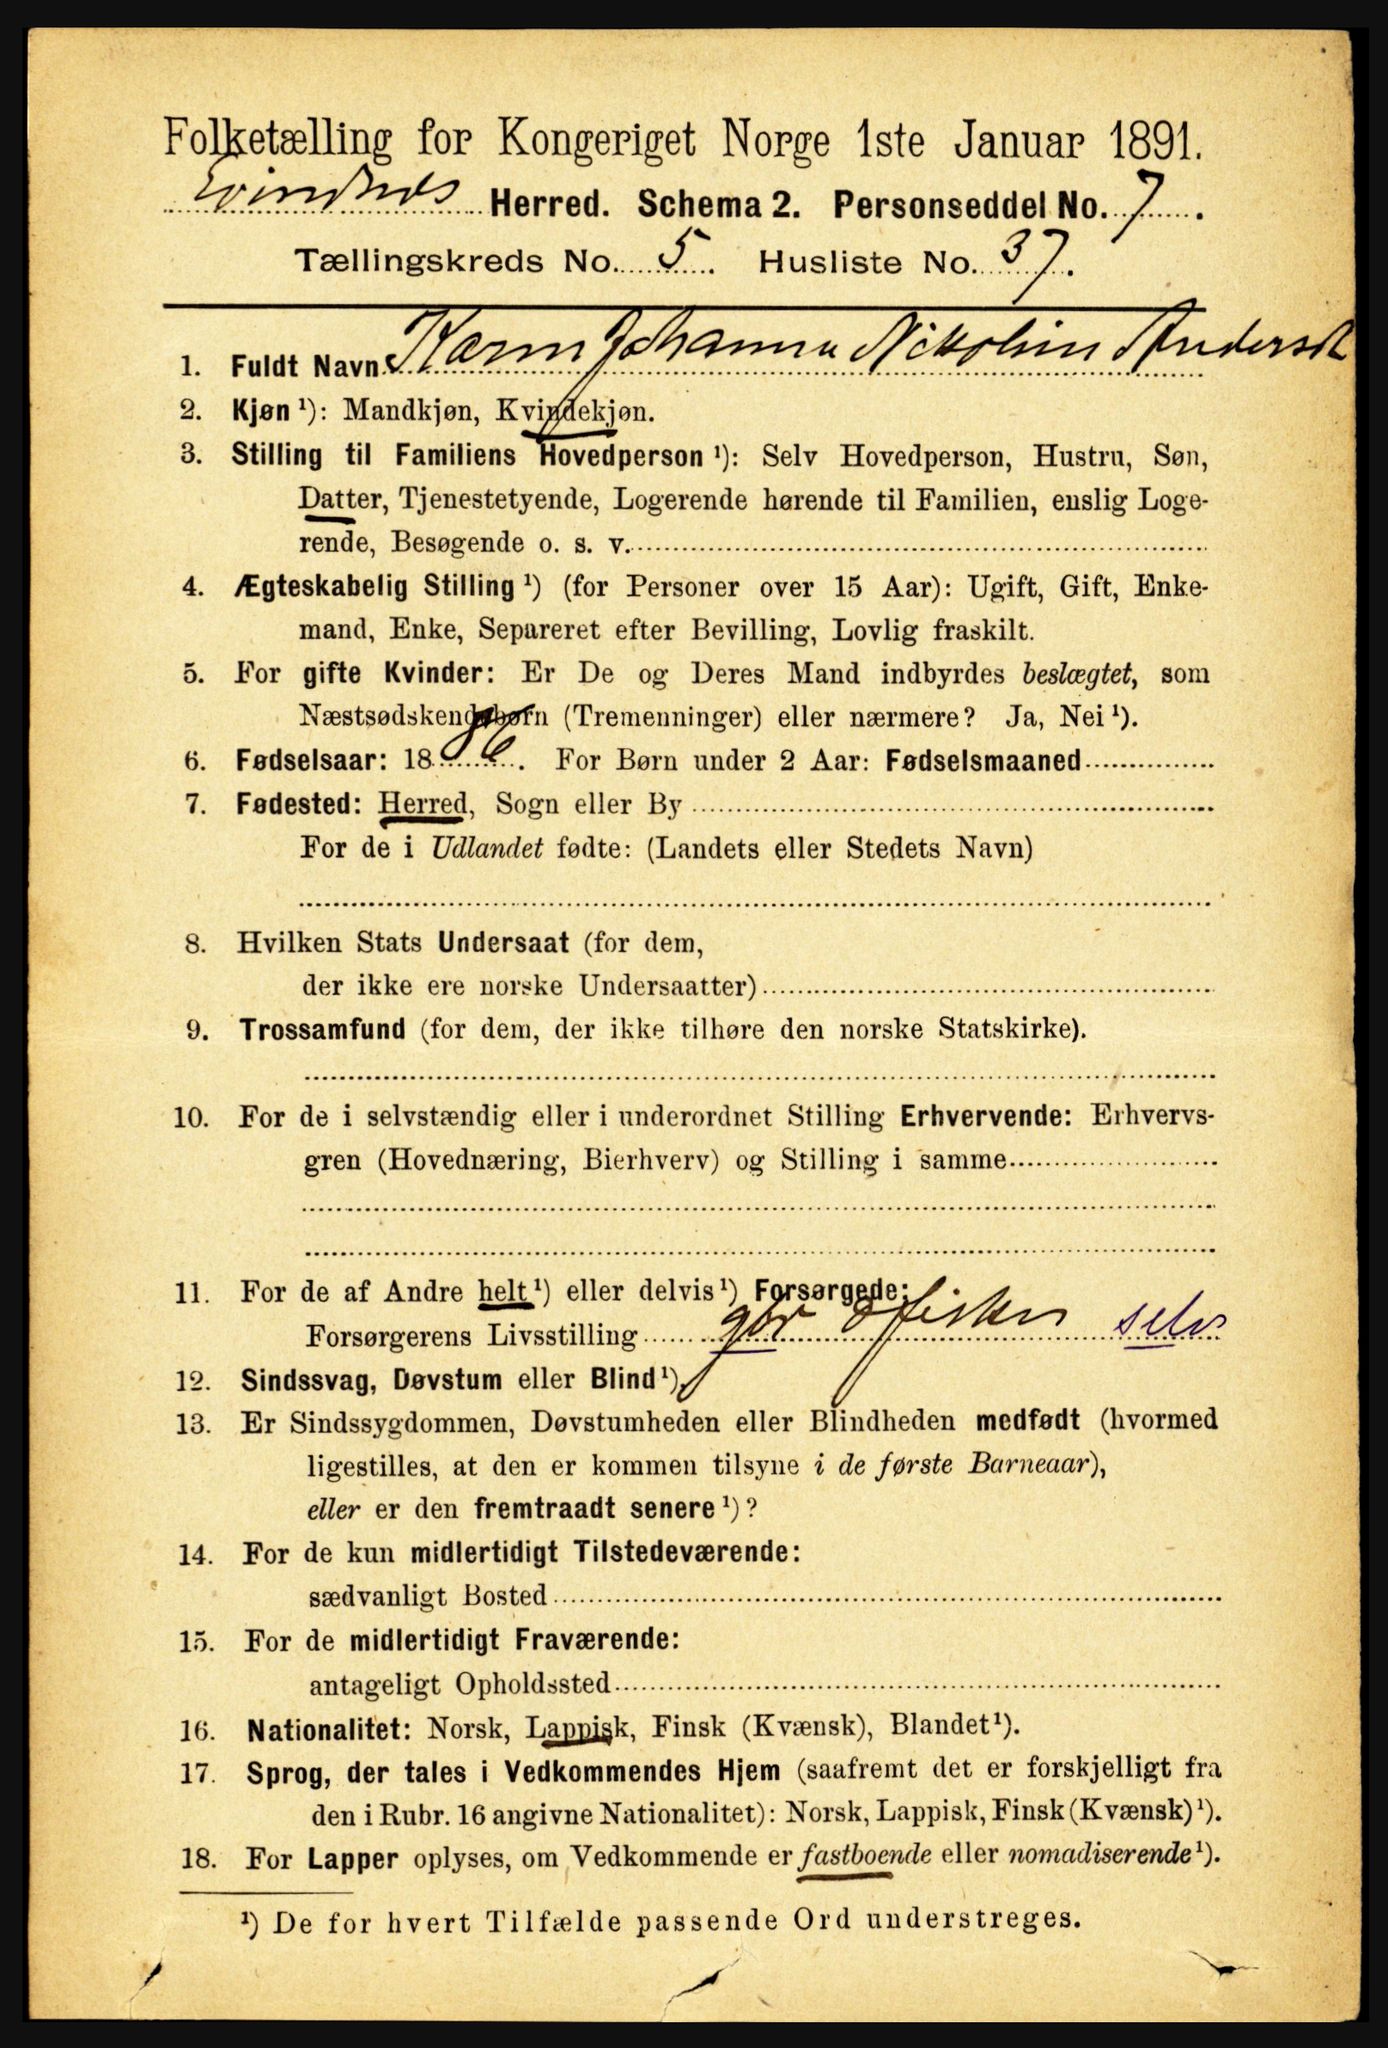 Folketælling for Kongeriget Norge 1ste Januar 1891.
Evindnes Herred. Schema 2. Personseddel No. 7.
Tællingskreds No. 5. Husliste No. 37.
1. Fuldt Navn Karen Johanna Nikoline Andersdt
2. Kjøn ¹): Mandkjøn, Kvindekjøn.
3. Stilling til Familiens Hovedperson ¹): Selv Hovedperson, Hustru, Søn,
Datter, Tjenestetyende, Logerende hørende til Familien, enslig Loge-
rende, Besøgende o. s. v.
4. Ægteskabelig Stilling ¹) (for Personer over 15 Aar): Ugift, Gift, Enke-
mand, Enke, Separeret efter Bevilling, Lovlig fraskilt.
5. For gifte Kvinder: Er De og Deres Mand indbyrdes beslægtet, som
Næstsødskendebørn (Tremenninger) eller nærmere? Ja, Nei ¹).
6. Fødselsaar: 1886. For Børn under 2 Aar: Fødselsmaaned
7. Fødested: Herred, Sogn eller By
For de i Udlandet fødte: (Landets eller Stedets Navn)
8. Hvilken Stats Undersaat (for dem,
der ikke ere norske Undersaatter)
9. Trossamfund (for dem, der ikke tilhøre den norske Statskirke).
10. For de i selvstændig eller i underordnet Stilling Erhvervende: Erhvervs-
gren (Hovednæring, Bierhverv) og Stilling i samme
11. For de af Andre helt ¹) eller delvis ¹) Forsørgede:
Forsørgerens Livsstilling gbr Fisker selv
12. Sindssvag, Døvstum eller Blind ¹),
13. Er Sindssygdommen, Døvstumheden eller Blindheden medfødt (hvormed
ligestilles, at den er kommen tilsyne i de første Barneaar),
eller er den fremtraadt senere ¹)?
14. For de kun midlertidigt Tilstedeværende:
sædvanligt Bosted
15. For de midlertidigt Fraværende:
antageligt Opholdssted
16. Nationalitet: Norsk, Lappisk, Finsk (Kvænsk), Blandet ¹).
17. Sprog, der tales i Vedkommendes Hjem (saafremt det er forskjelligt fra
den i Rubr. 16 angivne Nationalitet): Norsk, Lappisk, Finsk (Kvænsk) ¹).
18. For Lapper oplyses, om Vedkommende er fastboende eller nomadiserende ¹).
¹) De for hvert Tilfælde passende Ord understreges.